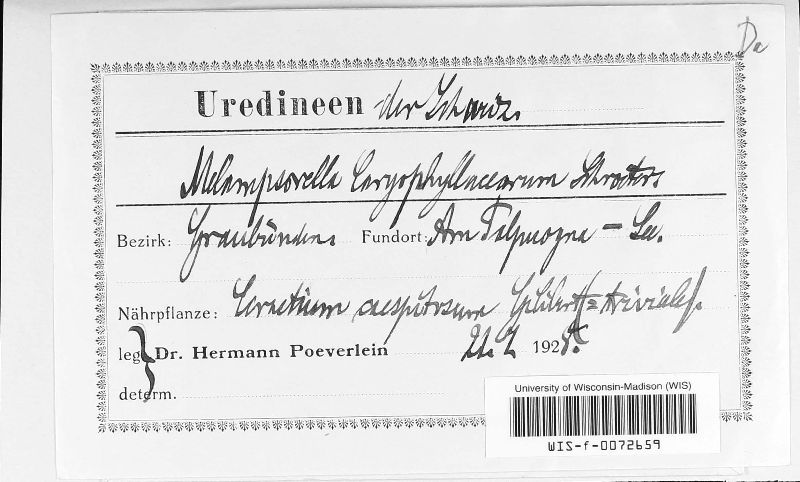 Da
Uredineen der Schweiz.
Melampsorella Caryophyllacearum Schroeter
Bezirk: Graubünden. Fundort: Am Palpuogna - See.
Nährpflanze: Cerastium caespitosum Gilibert (= triviale).
leg. Dr. Hermann Poeverlein 192
determ.
University of Wisconsin-Madison (WIS)
WIS-f-0072659